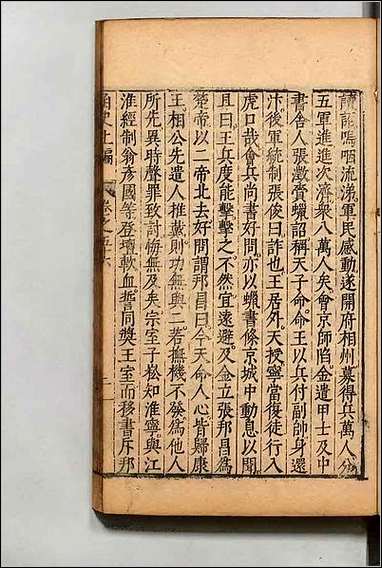 讀詔嗚咽流涕軍民感動遂開府相州募得兵萬人分
五軍進進次濟衆八萬人矣會京師陷金遣甲士及中
書舍人張澂賫蠟詔稱天子命命王以兵付副帥身還
汴後軍統制張俊曰詐也王居外天授寧當復徒行入
虎口哉會兵尚書好問亦以蠟書條京城中動息以聞
且曰王兵度能擊擊之不然宜遠避及金立張邦昌爲
楚帝以二帝北去好問謂邦昌曰今天命人心皆歸康
王相公先遣人推戴則功無與二若撫機不發爲他人
所先異時聲罪致討悔無及矣宗室子崧知淮寧與江
淮經制翁彥國等登壇歃血誓同奬王室而移書斥邦
史上編 卷之五六